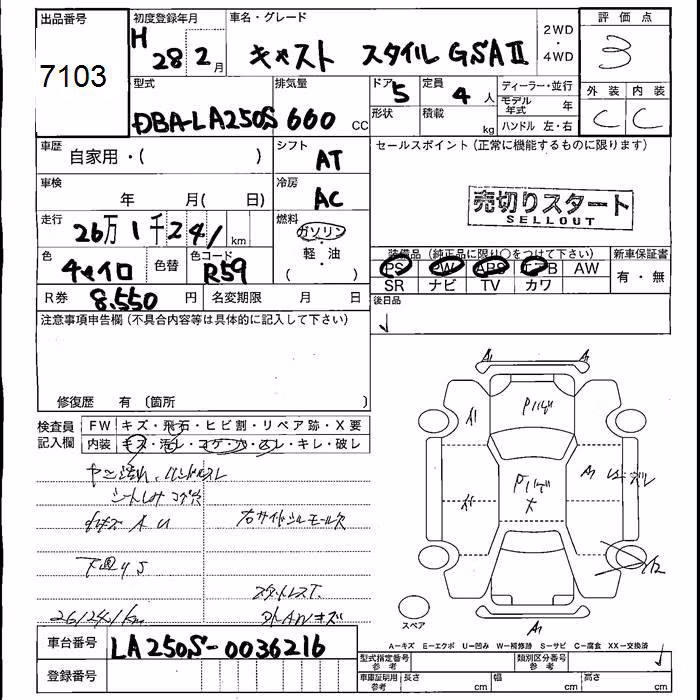 出品番号
7103
初度登録年月
H 28 2月
車名・グレード
キャスト スタイル GSAⅡ
2WD
・
4WD
評価点
3
外装 内装
C C
型式
DBA-LA250S
排気量
660 cc
ドア
5
形状
定員
4 人
積載
kg
ディーラー・並行
モデル年式 年
ハンドル 左・右
車歴
自家用・( )
シフト
AT
セールスポイント(正常に機能するものに限ります)
売切りスタート
SELLOUT
車検
年 月( 日)
冷房
AC
走行
26万1千241 km
燃料
ガソリン
・
軽・油
( )
色
チャイロ
色替
色コード
R59
装備品(純正品に限り○をつけて下さい)
PS PW ABS エアB AW
SR ナビ TV カワ
新車保証書
有・無
R券
8.550 円
名変期限 月 日
後日品
注意事項申告欄(不具合内容等は具体的に記入して下さい)
修復歴 有 〔箇所 〕
検査員
記入欄
FW キズ・飛石・ヒビ割・リペア跡・X要
内装 キズ・汚レ・コゲ・穴・スレ・キレ・破レ
A1
A1
A1
A1
A1
A1
スペア
右サイドシルモール欠
下廻りS
261241km
A-キズ E-エクボ U-凹み W-補修跡 S-サビ C-腐食 XX-交換済
車台番号
LA250S-0036216
登録番号
型式指定番号
参考
類別区分番号
参考
車庫証明用
参考
長さ cm
幅 cm
高さ cm